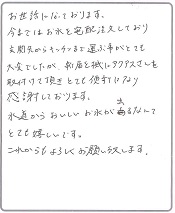 お世話になっております。
今まではお水を宅配注文しており
玄関先からキッチンまで運ぶ事がとても
大変でしたが、新居を機にアクアスさしを
取付けて頂きとても便利になり
感謝しております。
水道からおいしいお水が出るなんて
とても嬉しいです。
これからもよろしくお願い致します。